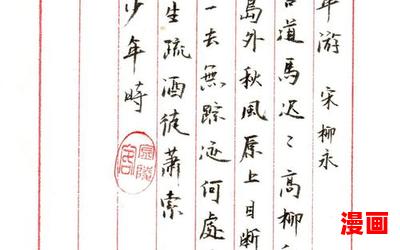 年游 宋柳永
古道馬迟〻高柳
島外秋風原上目斷
一去無踪迹何處
生疏酒徒蕭索
少年時
漫画